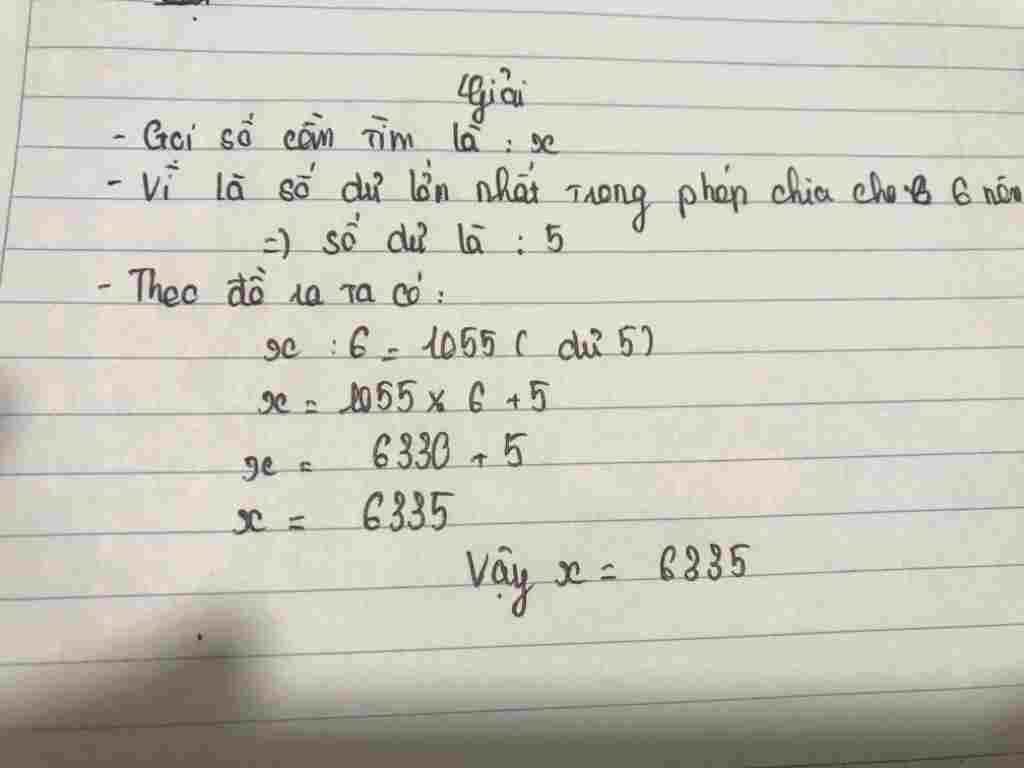 Giải
- Gọi số cần tìm là : x
- Vì là số dư lớn nhất trong phép chia cho 6 nên
=) số dư là : 5
- Theo đề ra ta có :
x : 6 = 1055 ( dư 5)
x = 1055 x 6 + 5
x = 6330 + 5
x = 6335
Vậy x = 6335